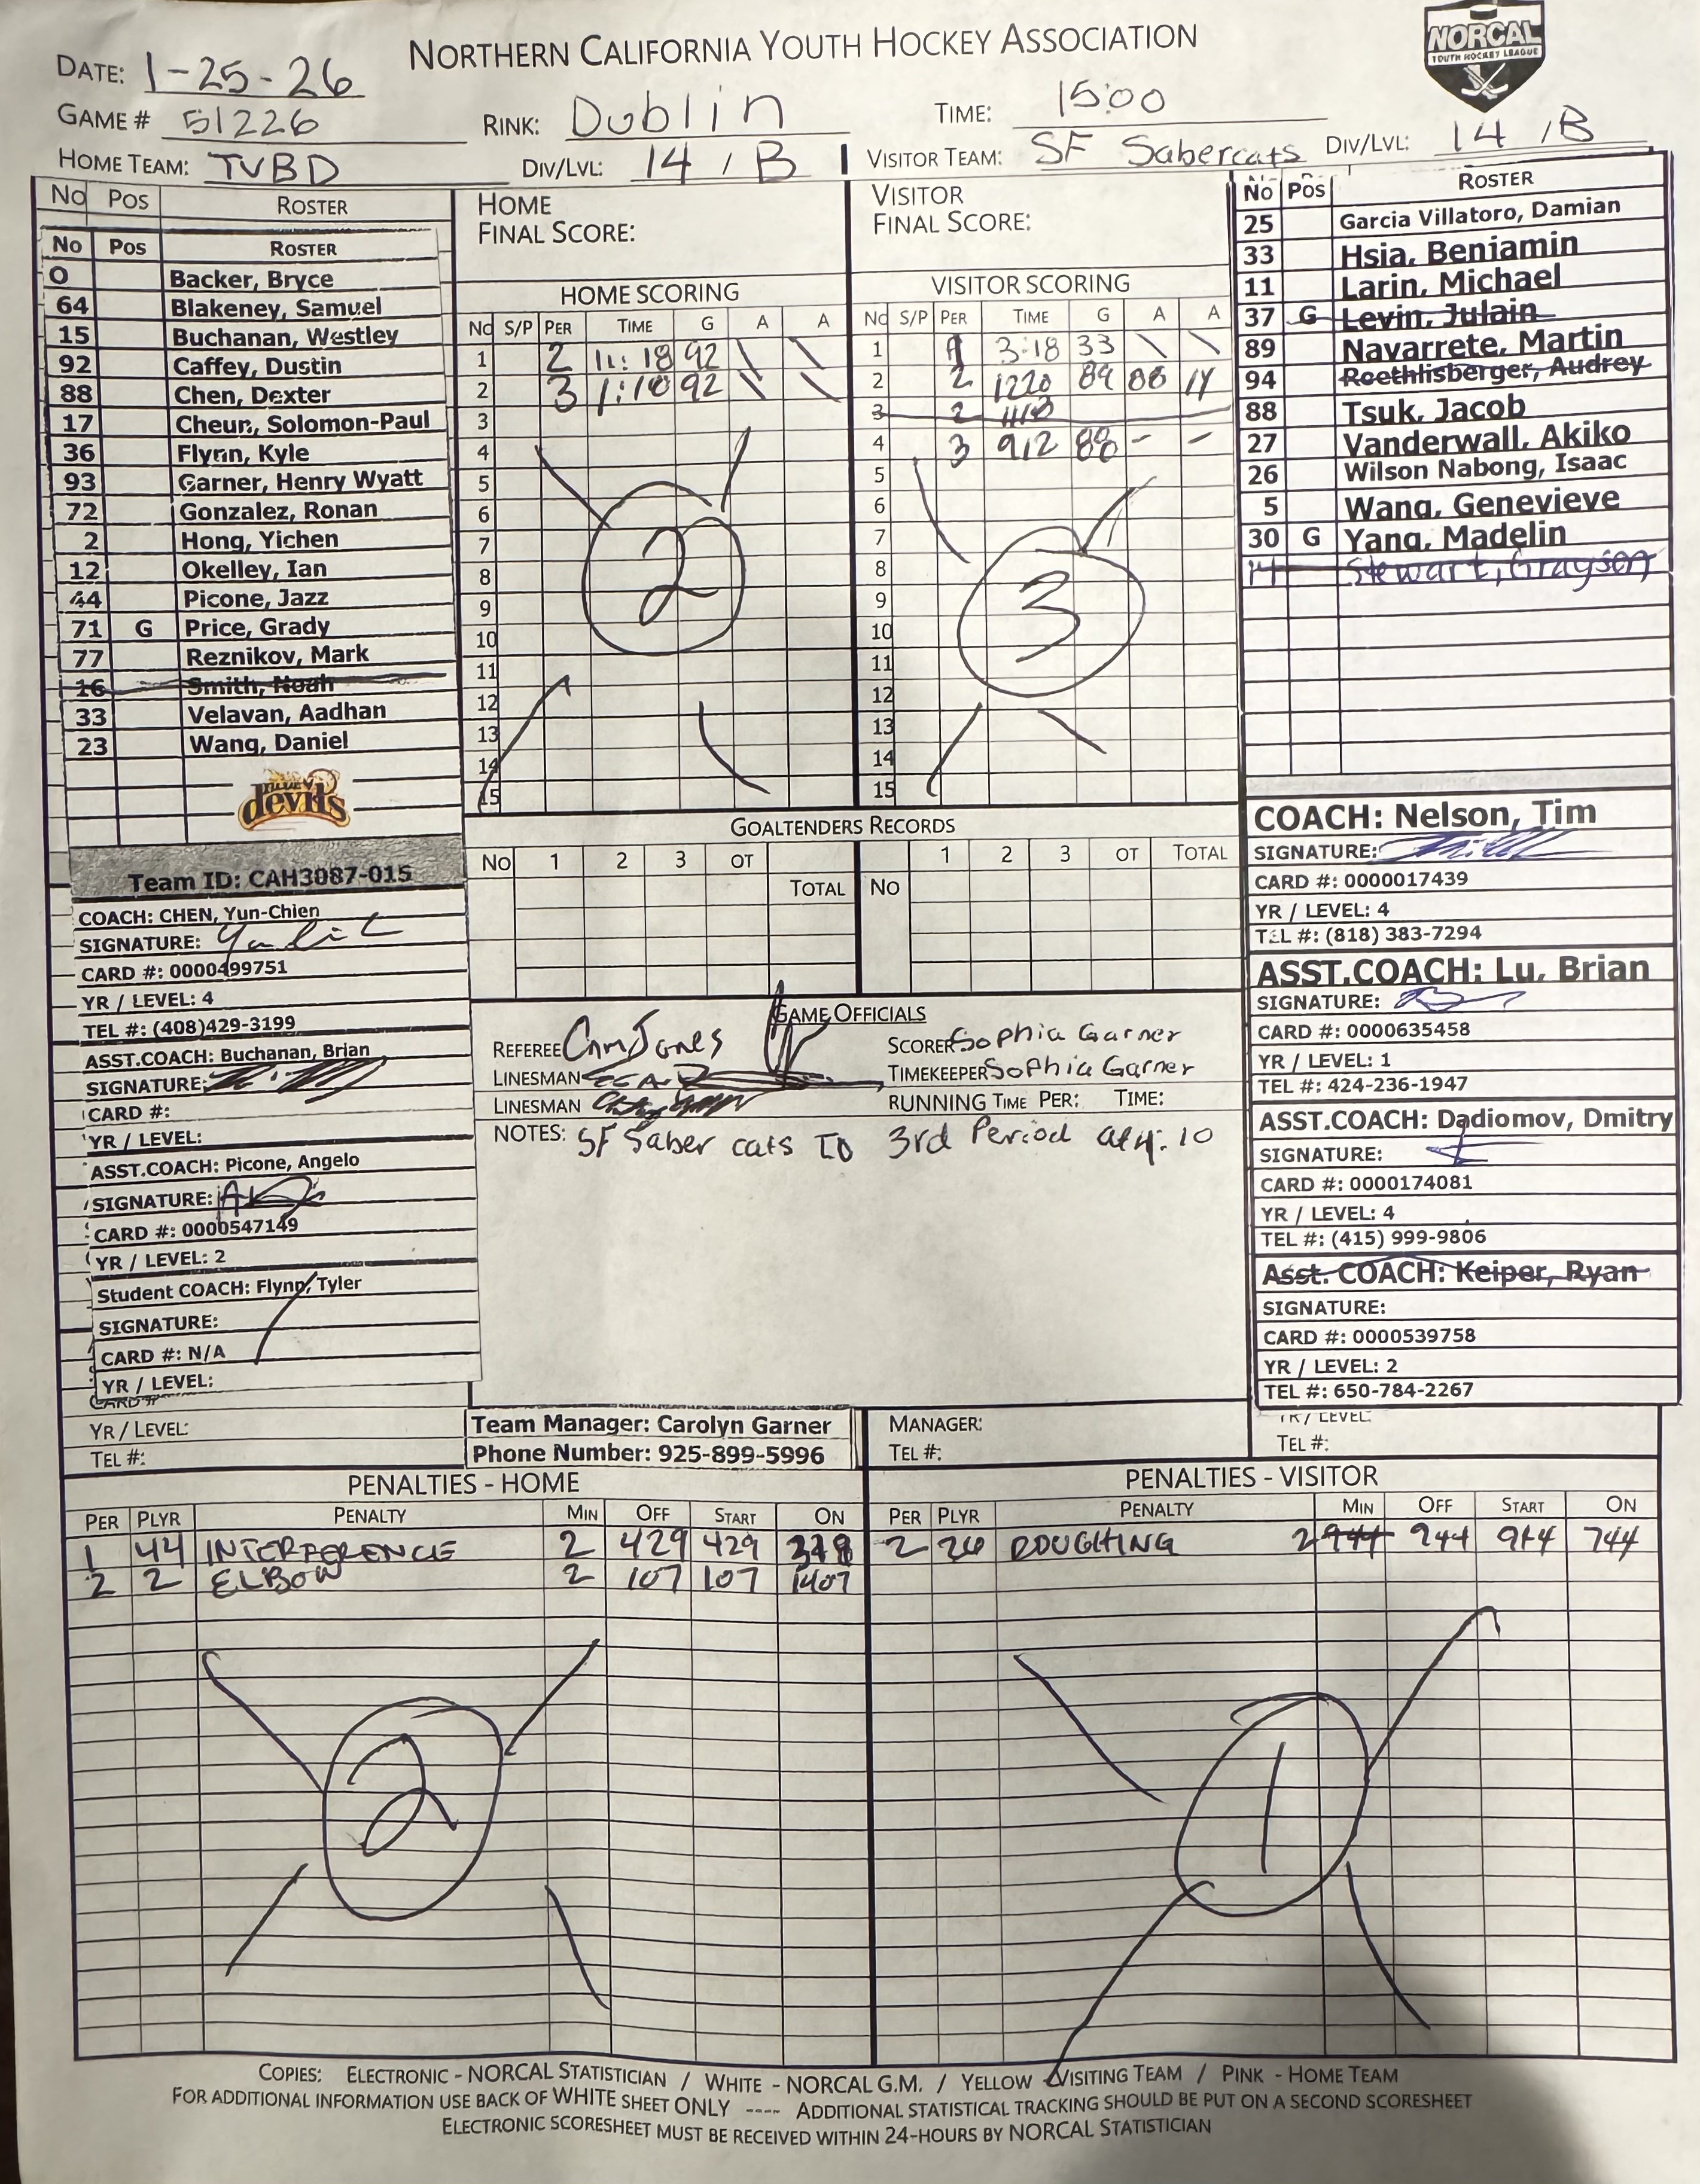 NORTHERN CALIFORNIA YOUTH HOCKEY ASSOCIATION
NORCAL
YOUTH HOCKEY LEAGUE
DATE: 1-25-26
GAME # 51226
RINK: Dublin
TIME: 15:00
HOME TEAM: TVBD
DIV/LVL: 14 / B
VISITOR TEAM: SF Sabercats
DIV/LVL: 14 / B
No Pos ROSTER
No Pos ROSTER
0 Backer, Bryce
64 Blakeney, Samuel
15 Buchanan, Westley
92 Caffey, Dustin
88 Chen, Dexter
17 Cheun, Solomon-Paul
36 Flynn, Kyle
93 Garner, Henry Wyatt
72 Gonzalez, Ronan
2 Hong, Yichen
12 Okelley, Ian
44 Picone, Jazz
71 G Price, Grady
77 Reznikov, Mark
16 Smith, Noah
33 Velavan, Aadhan
23 Wang, Daniel
devils
Team ID: CAH3087-015
COACH: CHEN, Yun-Chien
SIGNATURE:
CARD #: 0000499751
YR / LEVEL: 4
TEL #: (408)429-3199
ASST.COACH: Buchanan, Brian
SIGNATURE:
CARD #:
YR / LEVEL:
ASST.COACH: Picone, Angelo
SIGNATURE:
CARD #: 0000547149
YR / LEVEL: 2
Student COACH: Flynn, Tyler
SIGNATURE:
CARD #: N/A
YR / LEVEL:
CARD #
YR / LEVEL:
TEL #:
HOME
FINAL SCORE:
HOME SCORING
No S/P PER TIME G A A
1 2 11:18 92 \ \
2 3 1:10 92 \ \
3
4
5
6
7
8
9
10
11
12
13
14
15
2
VISITOR
FINAL SCORE:
VISITOR SCORING
No S/P PER TIME G A A
1 3:18 33 \ \
2 2 1220 89 88 14
3 2
4 3 912 88 - -
5
6
7
8
9
10
11
12
13
14
15
3
GOALTENDERS RECORDS
No 1 2 3 OT
TOTAL
No 1 2 3 OT TOTAL
GAME OFFICIALS
REFEREE Cam Jones
LINESMAN
LINESMAN
SCORER Sophia Garner
TIMEKEEPER Sophia Garner
RUNNING TIME PER: TIME:
NOTES: SF Saber cats TO 3rd Period at 4:10
Team Manager: Carolyn Garner
Phone Number: 925-899-5996
MANAGER:
TEL #:
No Pos ROSTER
25 Garcia Villatoro, Damian
33 Hsia, Benjamin
11 Larin, Michael
37 G Levin, Julain
89 Navarrete, Martin
94 Roethlisberger, Audrey
88 Tsuk, Jacob
27 Vanderwall, Akiko
26 Wilson Nabong, Isaac
5 Wang, Genevieve
30 G Yang, Madelin
14 Stewart, Grayson
COACH: Nelson, Tim
SIGNATURE:
CARD #: 0000017439
YR / LEVEL: 4
TEL #: (818) 383-7294
ASST.COACH: Lu, Brian
SIGNATURE:
CARD #: 0000635458
YR / LEVEL: 1
TEL #: 424-236-1947
ASST.COACH: Dadiomov, Dmitry
SIGNATURE:
CARD #: 0000174081
YR / LEVEL: 4
TEL #: (415) 999-9806
Asst. COACH: Keiper, Ryan
SIGNATURE:
CARD #: 0000539758
YR / LEVEL: 2
TEL #: 650-784-2267
YR / LEVEL:
TEL #:
PENALTIES - HOME
PER PLYR PENALTY MIN OFF START ON
1 44 INTERFERENCE 2 429 429 318
2 2 ELBOW 2 107 107 1407
2
PENALTIES - VISITOR
PER PLYR PENALTY MIN OFF START ON
2 26 ROUGHING 2 944 944 944 744
1
COPIES: ELECTRONIC - NORCAL STATISTICIAN / WHITE - NORCAL G.M. / YELLOW - VISITING TEAM / PINK - HOME TEAM
FOR ADDITIONAL INFORMATION USE BACK OF WHITE SHEET ONLY ---- ADDITIONAL STATISTICAL TRACKING SHOULD BE PUT ON A SECOND SCORESHEET
ELECTRONIC SCORESHEET MUST BE RECEIVED WITHIN 24-HOURS BY NORCAL STATISTICIAN